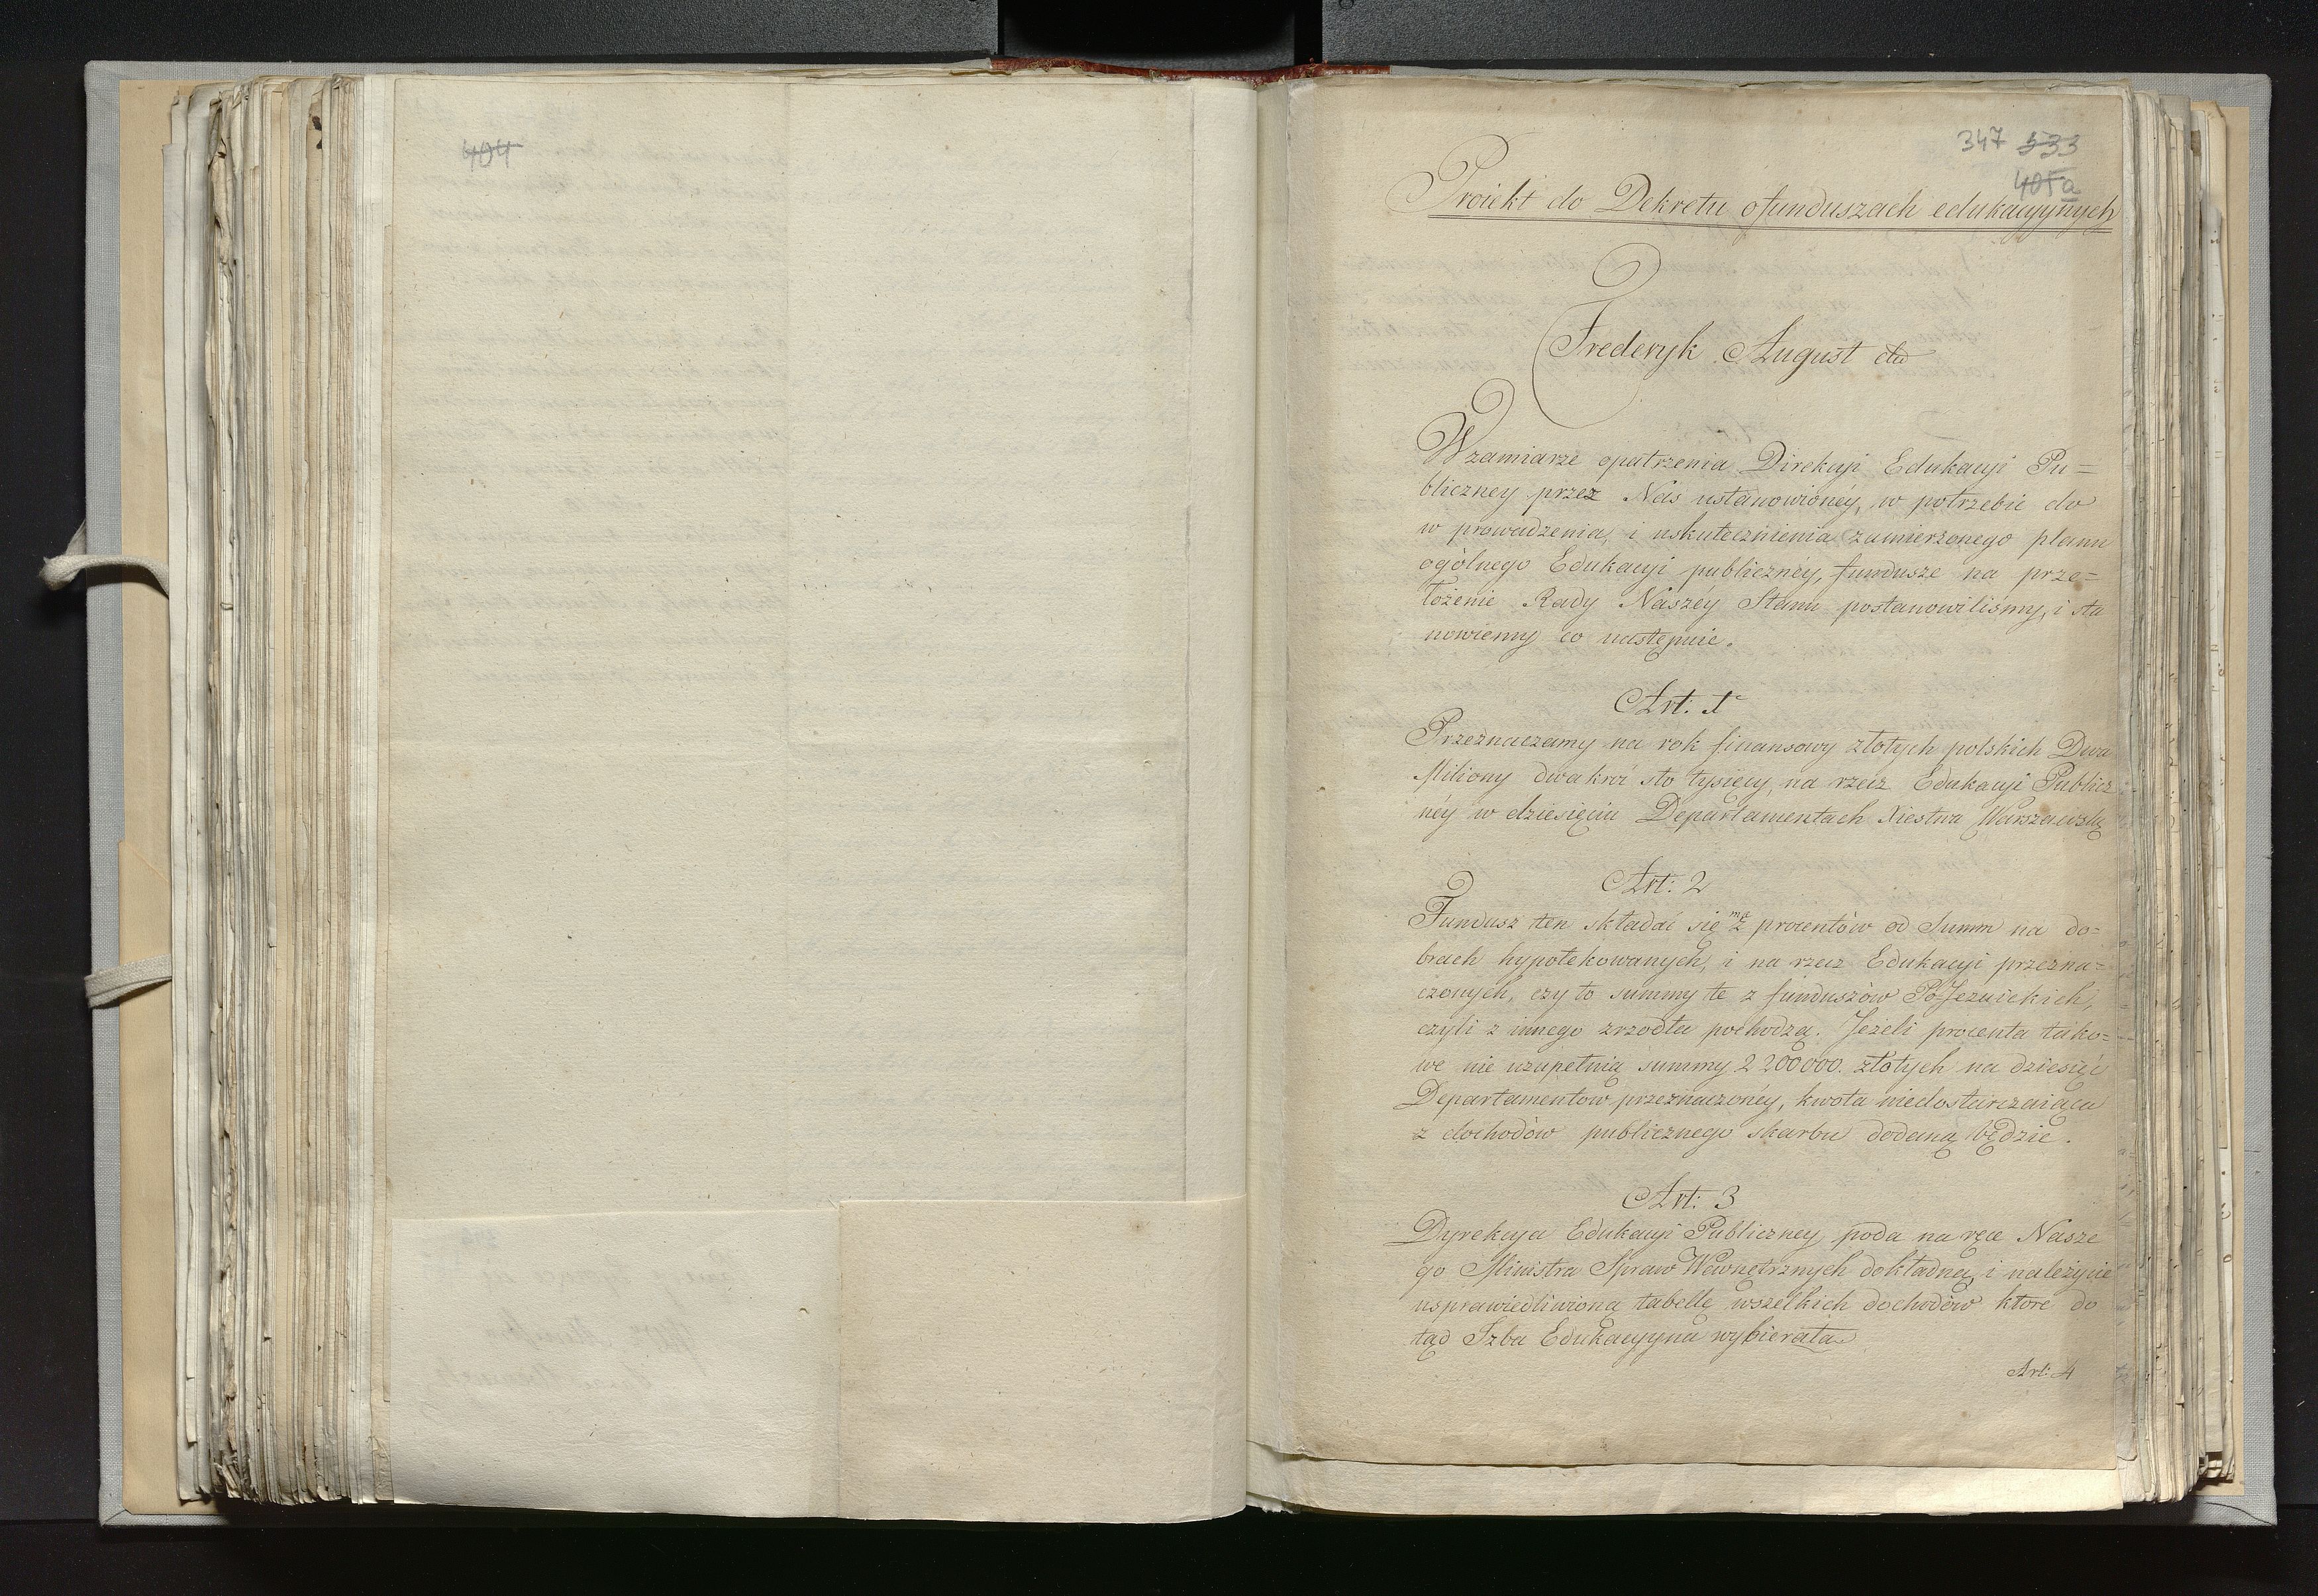 404
347 533
405a
Proiekt do Dekretu o funduszach edukacyjnych
Frederyk August etc
W zamiarze opatrzenia Direkcyi Edukacyi Pu=
bliczney przez Nas ustanowionéy, w potrzebie do
w prowadzenia, i uskutecznienia zamierzonego planu
ogólnego Edukacyi publicznéy, fundusze na prze=
łożenie Rady Naszéy Stanu postanowiliśmy, i sta
nowiemy co następuie.
Art: 1º
Przeznaczamy na rok finansowy złotych polskich Dwa
Miliony dwakroć sto tysięcy, na rzecz Edukacyi Publicz
néy w dziesięciu Departamentach Xiestwa Warszawskº
Art: 2
Fundusz ten składać się ma z procentów od Summ na do=
brach hypotekowanych, i na rzecz Edukacyi przezna=
czonych, czy to summy te z funduszów Po-Jezuickich,
czyli z innego zrzodła pochodzą. Jeżeli procenta tako=
we nie uzupełnią summy 2200000. złotych na dziesięć
Departamentow przeznaczonéy, kwota niedostarczaiąca
z dochodów publicznego skarbu dodaną będzie.
Art: 3
Dyrekcya Edukacyi Publiczney poda na ręce Nasze
go Ministra Spraw Wewnętrznych dokładną, i należycie
usprawiedliwioną tabellę wszelkich dochodów ktore do
tąd Izba Edukacyyna wybierała.
Art: 4